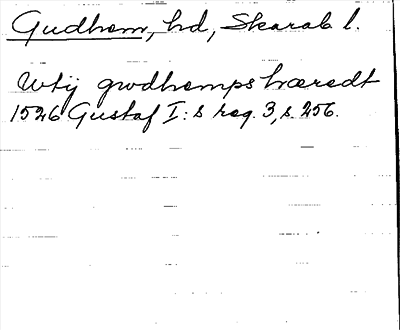 Gudhem, hd, Skarab l.
Wtij gwdhemps hæredt
1526 Gustaf I:s reg. 3, s. 256.